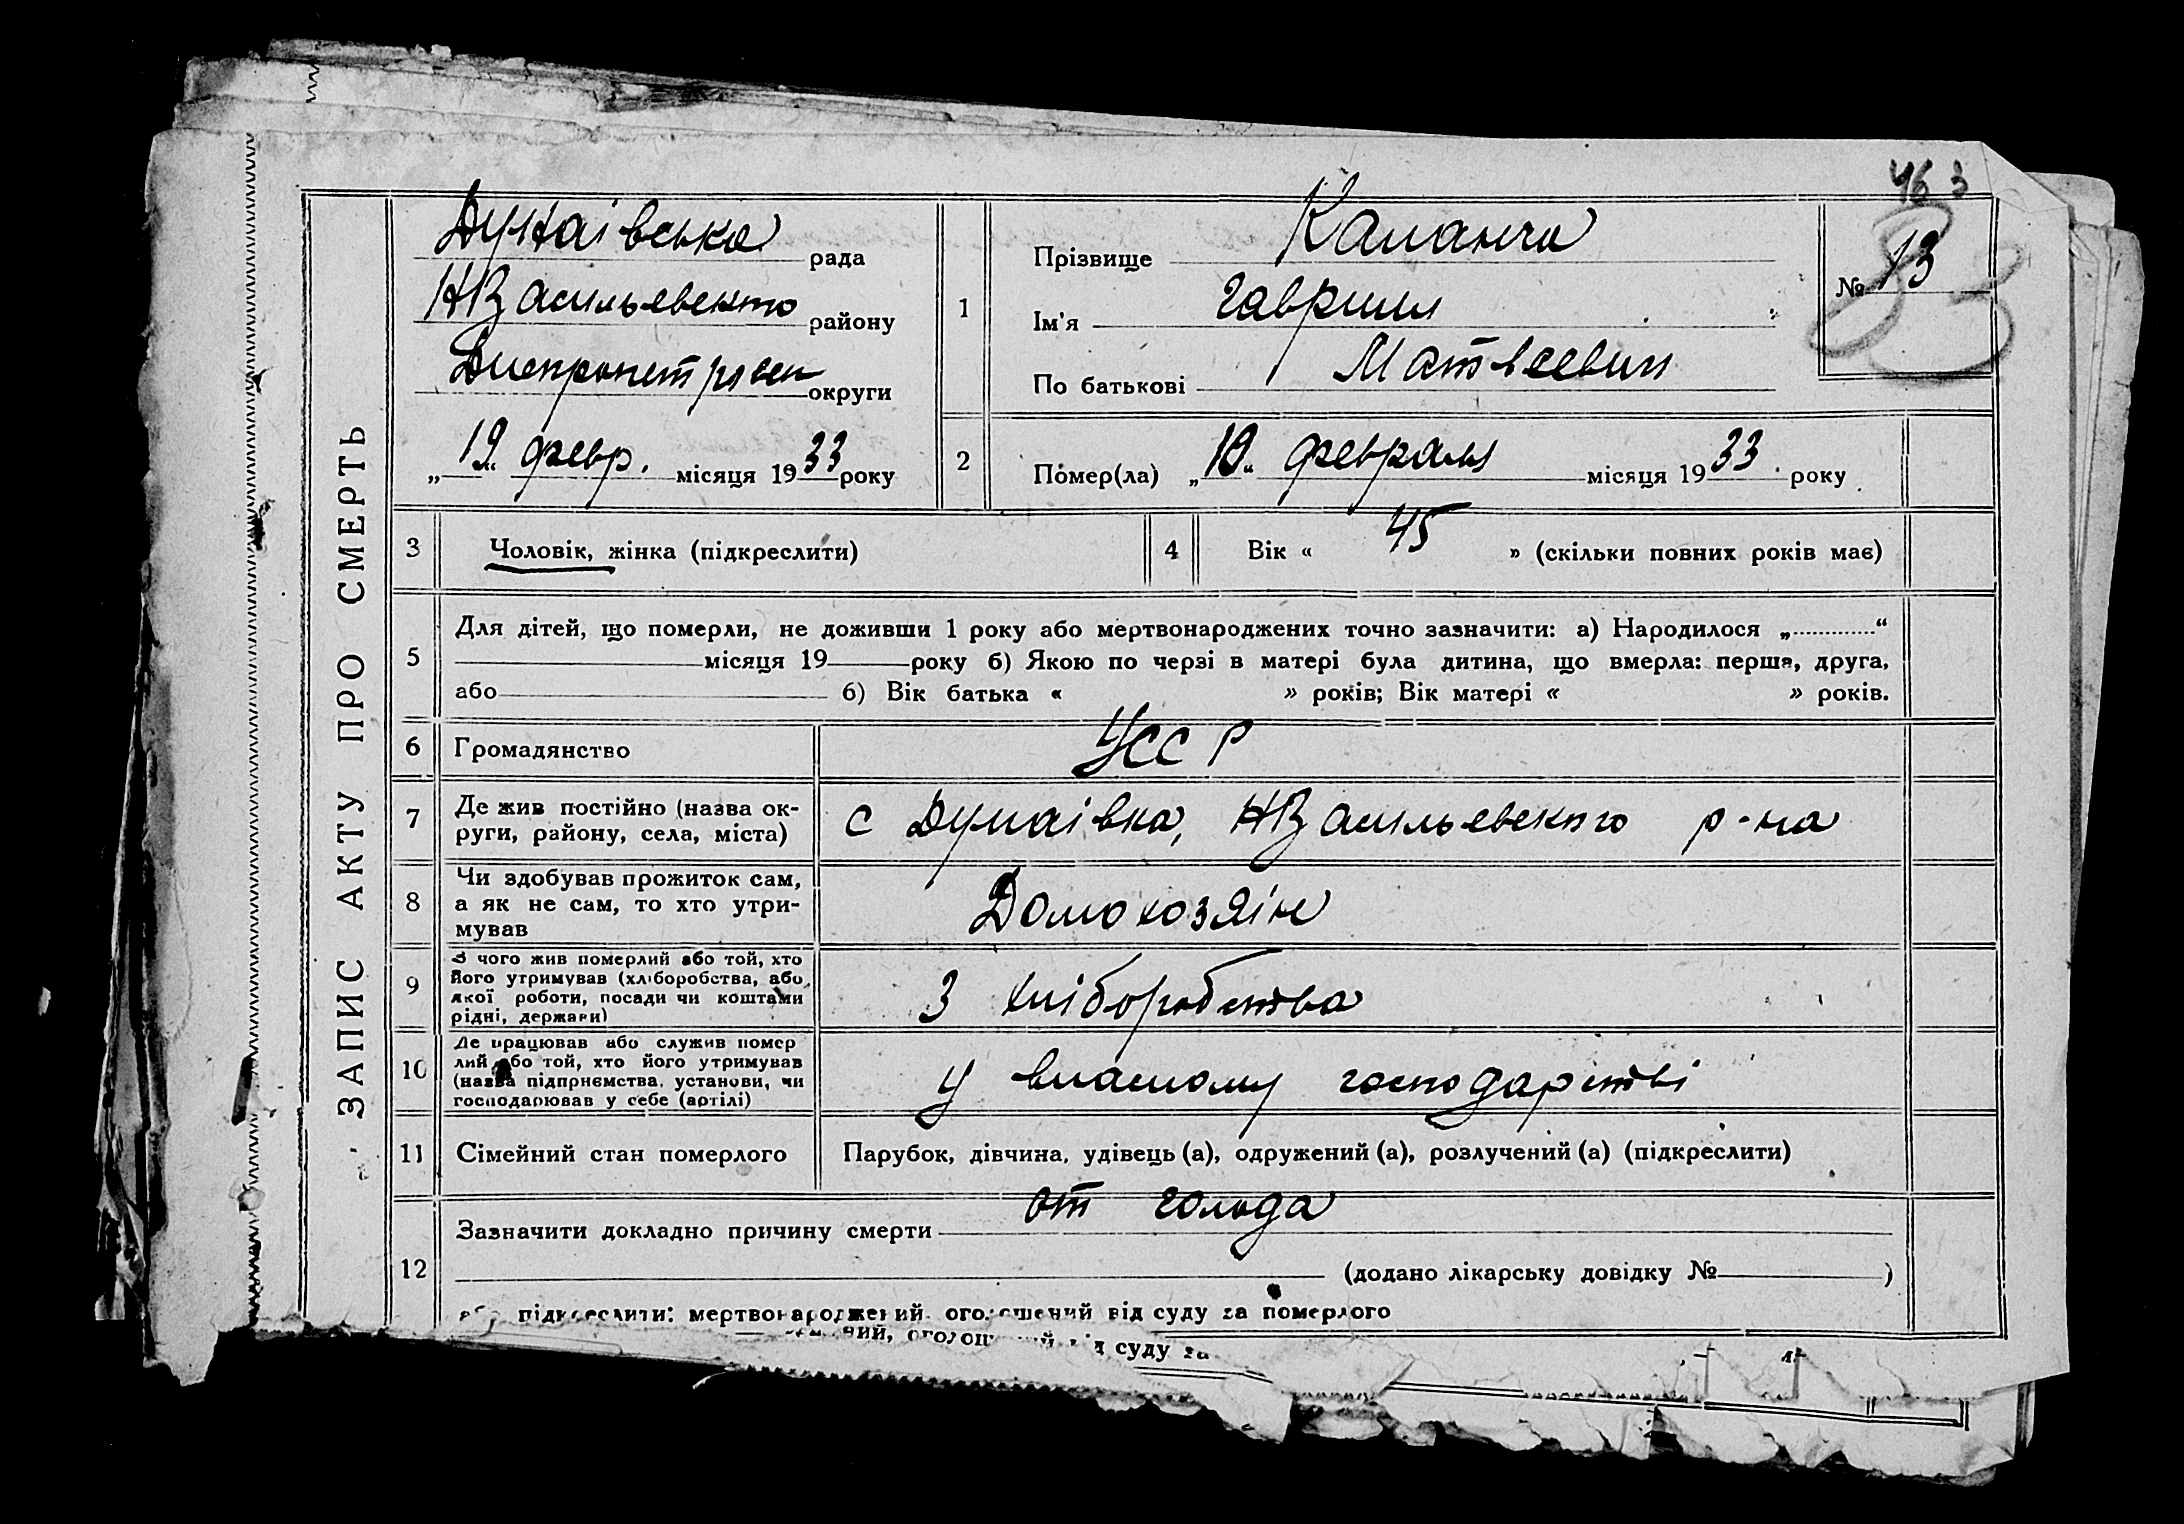 463
ЗАПИС АКТУ ПРО СМЕРТЬ
Дунаівська рада
НВасильевского району
Днепропетровск округи
„19“ февр. місяця 1933 року
1
Прізвище
Ім'я Гавриил
По батькові Матвеевич
№ 13
2
Помер(ла) „19“ февраля місяця 1933 року
3
Чоловік, жінка (підкреслити)
4
Вік « 45 » (скільки повних років має)
5
Для дітей, що померли, не доживши 1 року або мертвонароджених точно зазначити: а) Народилося „..............“
місяця 19 року б) Якою по черзі в матері була дитина, що вмерла: перша, друга,
або б) Вік батька « » років; Вік матері « » років.
6
Громадянство
УССР
7
Де жив постійно (назва ок-
руги, району, села, міста)
с Дунаівка, НВасильевского р-на
8
Чи здобував прожиток сам,
а як не сам, то хто утри-
мував
Домохозяін
9
З чого жив померлий або той, хто
його утримував (хліборобства, або
якої роботи, посади чи коштами
рідні, держави)
З хліборобства
10
Де працював або служив помер
лий або той, хто його утримував
(назва підприємства, установи, чи
господарював у себе (артілі)
у власному господарстві
11
Сімейний стан померлого
Парубок, дівчина, удівець (а), одружений (а), розлучений (а) (підкреслити)
12
Зазначити докладно причину смерти от голода
(додано лікарську довідку № )
підкреслити: мертвонароджений, оголошений від суду за померлого
суду за